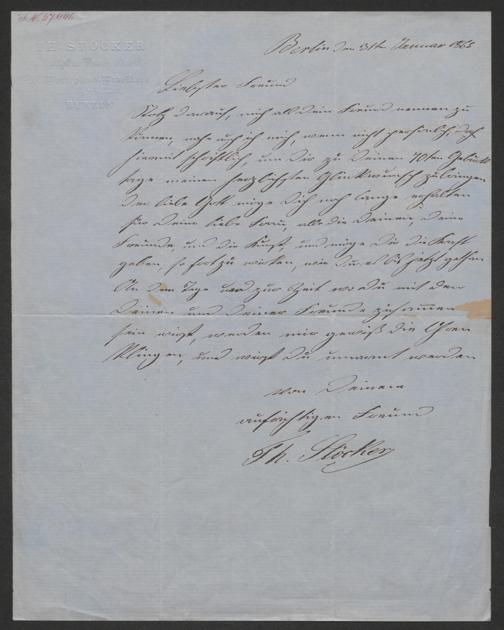 TH. STÖCKER
Berlin den 31ten Januar 1865
Liebster Freund
Stolz darauf, mich als Dein Freund nennen zu
können, nahe ich mich, wenn nicht persönlich, doch
hiermit schriftlich, um Dir zu Deinem 70ten Geburts
tage meinen herzlichsten Glückwunsch zu bringen
der liebe Gott möge Dich noch lange erhalten
für Deine liebe Frau, alle die Deinen, Deine
Freunde, und die Kunst, und möge Dir die Kraft
geben, so fortzuwirken, wie Du es bis jetzt gethan
An dem Tage und zur Zeit wo Du mit den
Deinen und Deiner Freunde zusammen
sein wirst, werden mir gewiß die Ohren
klingen, und wirst Du umarmt werden
von Deinem
aufrichtigen Freund
Th. Stöcker